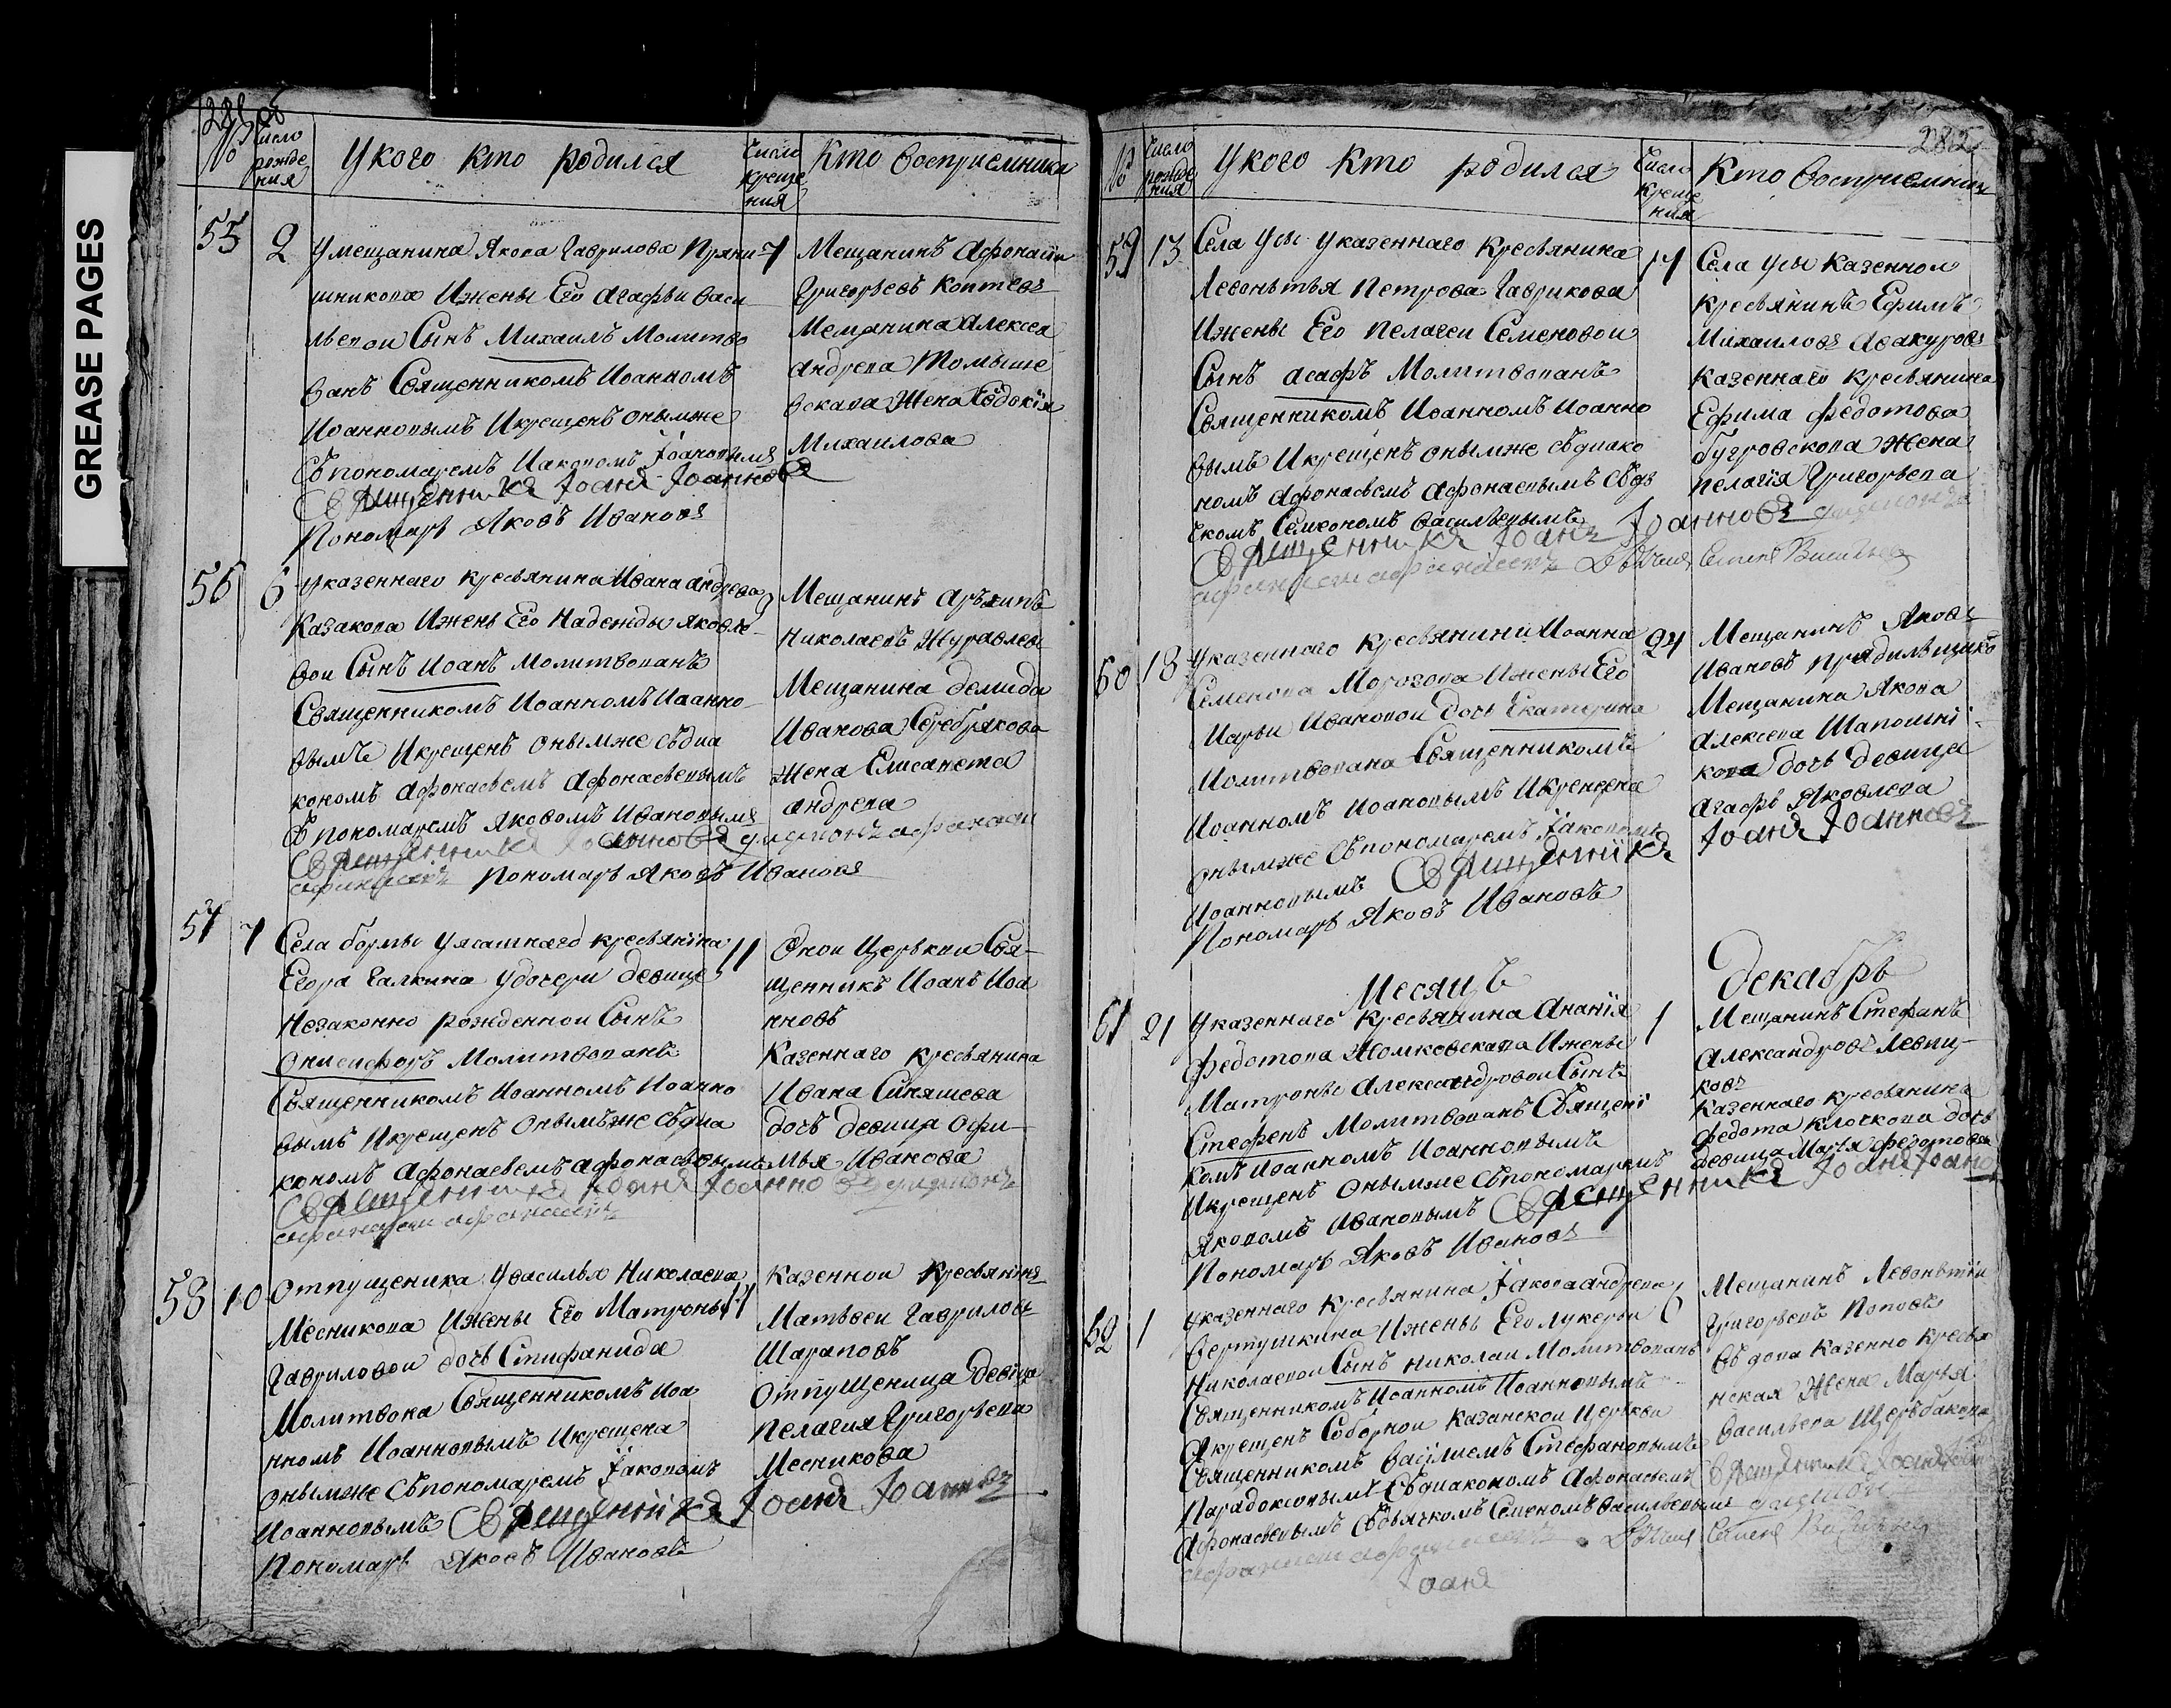 GREASE PAGES
281 об
№
Число рожде ния
Укого Кто родился
Число креще ния
Кто восприемники
55
2
Умещанина Якова Гаврилова Пряни
шникова Ижены Его Агафьи Васи
льевои Сынъ Михаилъ Молитво
ванъ Священникомъ Иоанномъ
Иоанновымъ Икрещенъ онымже
Съпономаремъ Иаковомъ Iоановымъ
Священникъ Iоанъ Iоанновъ
Пономарь Яковъ Ивановъ
7
Мещанинъ Афонасiи
Григорьевъ Коптевъ
Мещанина Алексея
Андреева
Жена Евдокiя
Михаилова
56
6
Указеннаго кресьянина Ивана андреева
Казакова Ижены Его Надежды Яковле
вои Сынъ Иоанъ Молитвованъ
Священникомъ Иоанномъ Иоанно
вымъ Икрещенъ онымже Съдиа
кономъ Афонасьемъ Афонасьевымъ
Съпономаремъ Яковомъ Ивановымъ
Священникъ Iоанновъ
Пономарь Яковъ Ивановъ
Мещанинъ Архипъ
Николаевъ Журавлевъ
Мещанина демида
Иванова Серебрякова
Жена Елисавета
андреева
57
7
Села борлы Уясашнаго кресьянина
Егора Галкина Удочери девице
Незаконно рожденнои Сынъ
Онисифоръ Молитвованъ
Священникомъ Иоанномъ Иоанно
вымъ Икрещенъ Онымъже Съдиа
кономъ Афонасьемъ афонасьевымъ
Священникъ Iоанъ Iоанновъ диаконъ
афанасеи афанасевъ
11
Онои Церькви Свя
щенникъ Иоанъ Иоа
нновъ
Казеннаго кресьянина
Ивана Синяшева
дочь девица Офи
мья Иванова
58
10
Отпущеника Увасилья Николаева
Месникова Ижены Его Матроны
Гавриловои дочь Стифанида
Молитвована Священникомъ Иоа
нномъ Иоанновымъ Икрещена
онымже Съпономаремъ Iаковомъ
Иоанновымъ Священникъ Iоанъ Iоанновъ
Пономарь Яковъ Ивановъ
Казеннои Кресьянинъ
Матьвеи Гавриловъ
Шараповъ
Отпущеница девица
Пелагия Григорьева
Месникова
282
№
Число рожде ния
Укого Кто родился
Число Креще ния
Кто восприемники
59
13
Села Усы Указеннаго Кресьянина
Леоньтья Петрова Гаврикова
Ижены Его Пелагеи Семеновои
Сынъ Асафъ Молитвованъ
Священникомъ Иоанномъ Иоанно
вымъ Икрещенъ онымже Съдиако
номъ Афонасьемъ Афонасьевымъ Съдь
ячкомъ Семеономъ Васильевымъ
Священникъ Iоанъ Iоанновъ диаконъ
афанасеи афанасевъ Дьячекъ Семенъ Васильевъ
17
Села Усы Казеннои
кресьянинъ Ефимъ
Михаиловъ Авакумовъ
казеннаго кресьянина
Ефима Федотова
бугровскова Жена
Пелагiя Григорьева
60
18
Указеннаго Кресьянини Иоанна
Семенова Морозова Ижены Его
Марьи Ивановои Дочь Екатерина
Молитвована Священникомъ
Иоанномъ Иоановымъ Икрещена
онымже Съпономаремъ Iаковомъ
Иоанновымъ Священникъ Iоанъ Iоанновъ
Пономарь Яковъ Ивановъ
24
Мещанинъ Яковъ
Ивановъ Прядильщико
Мещанина Якова
Алексева Шапошнi
кова дочь девица
Агафъ Яковлева
Месяцъ Декабрь
61
21
Указеннаго кресьянина Ананiя
Федотова Жомковскава Ижены
Матроны Александровои Сынъ
Стефенъ Молитвованъ Священi
комъ Иоанномъ Иоанновымъ
Икрещенъ онымже Съпономаремъ
Яковомъ Ивановымъ Священникъ Iоанъ Iоанно
Пономарь Яковъ Ивановъ
1
Мещанинъ Стефанъ
Александровъ Левщу
ковъ
Казеннаго кресьянина
Федота Клочкова дочь
девица Марья Федотова
62
1
Указеннаго кресьянина Iакова андреева
Вертушкина Ижены Его Лукерьи
Николаевои Сынъ Николаи Молитвованъ
Священникомъ Иоанномъ Иоанновымъ
Икрещенъ Соборнои Казанскои Церькви
Священникомъ Василиемъ Стефановымъ
Парадоксовымъ Съдиакономъ Афонасьемъ
Афонасьевымъ Съдьячкомъ Семеномъ Васильевымъ
афанасеи афанасевъ Дьячекъ Семенъ Васильевъ
Iоанъ
6
Мещанинъ Левоньтiи
Григорьевъ Поповъ
Въдова Казенно кресья
нская Жена Марья
Васильева Щербакова
Священникъ Iоанъ
диаконъ